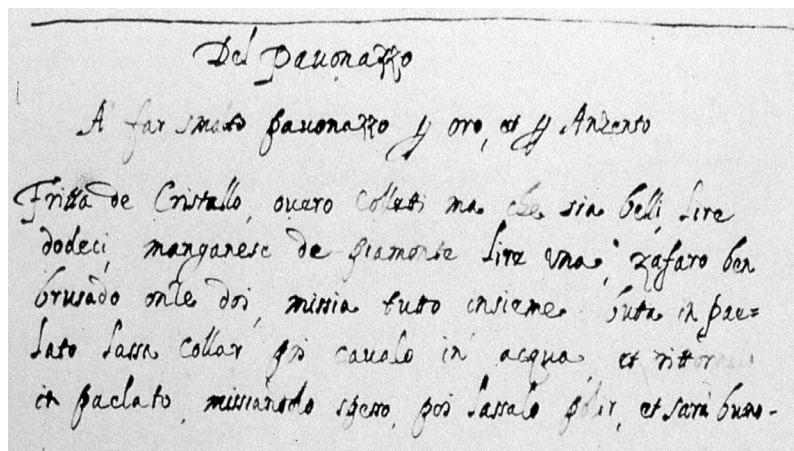 Del pauonazzo
A far smalto pauonazzo p oro, et p Anzento
Fritta de Cristallo, ouero Collatti ma che sia belli, lire
dodeci, manganese de piamonte lire una, zafaro ben
brusado onze doi, missia tutto insieme buta in pae=
lato lassa collar poi caualo in acqua, et rittorna
in paelato, missiandolo spesso, poi lassalo polir, et sarà buno-